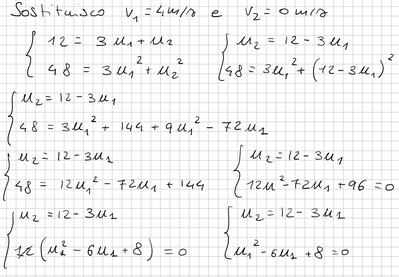 Sostituisco v₁ = 4 m/s e v₂ = 0 m/s
{ 12 = 3u₁ + u₂
{ 48 = 3u₁² + u₂²
{ u₂ = 12 - 3u₁
{ 48 = 3u₁² + (12 - 3u₁)²
{ u₂ = 12 - 3u₁
{ 48 = 3u₁² + 144 + 9u₁² - 72u₁
{ u₂ = 12 - 3u₁
{ 48 = 12u₁² - 72u₁ + 144
{ u₂ = 12 - 3u₁
{ 12u² - 72u₁ + 96 = 0
{ u₂ = 12 - 3u₁
{ 12 (u₁² - 6u₁ + 8) = 0
{ u₂ = 12 - 3u₁
{ u₁² - 6u₁ + 8 = 0